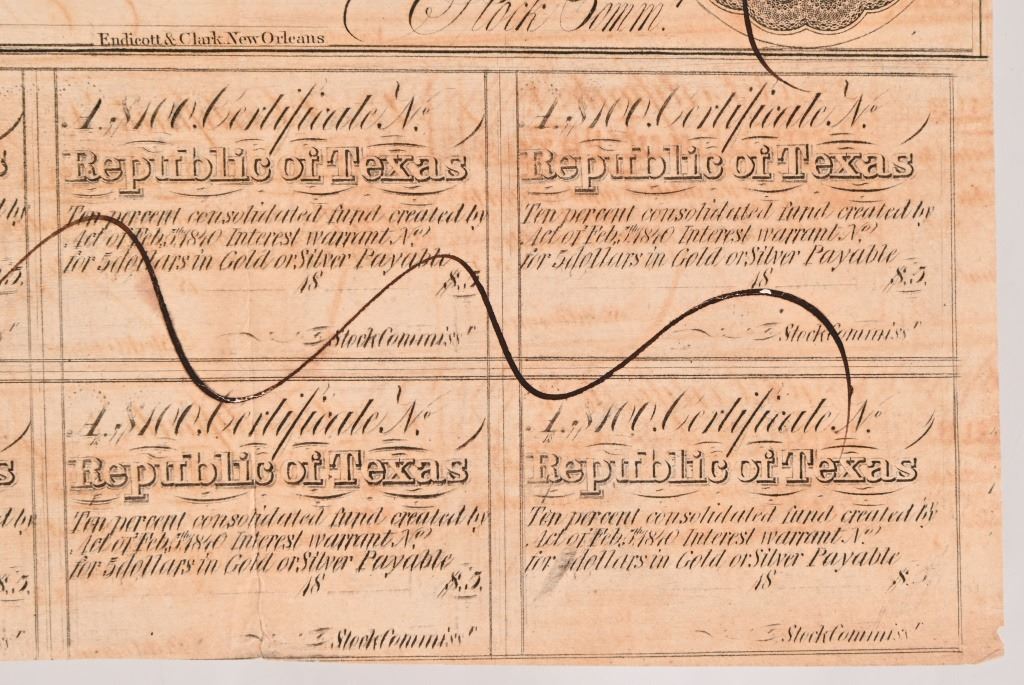 Stock Comm.r
Endicott & Clark, New Orleans
A, $100, Certificate No.
Republic of Texas
Ten percent consolidated fund created by
Act of Feb, 5th 1840 Interest warrant No.
for 5 dollars in Gold or Silver Payable
18 $.5.
Stock Commiss r
A, $100, Certificate No.
Republic of Texas
Ten percent consolidated fund created by
Act of Feb, 5th 1840 Interest warrant No.
for 5 dollars in Gold or Silver Payable
18 $.5.
Stock Commiss r
A, $100, Certificate No.
Republic of Texas
Ten percent consolidated fund created by
Act of Feb, 5th 1840 Interest warrant No.
for 5 dollars in Gold or Silver Payable
18 $.5.
Stock Commiss r
A, $100, Certificate No.
Republic of Texas
Ten percent consolidated fund created by
Act of Feb, 5th 1840 Interest warrant No.
for 5 dollars in Gold or Silver Payable
18 $.5.
Stock Commiss r